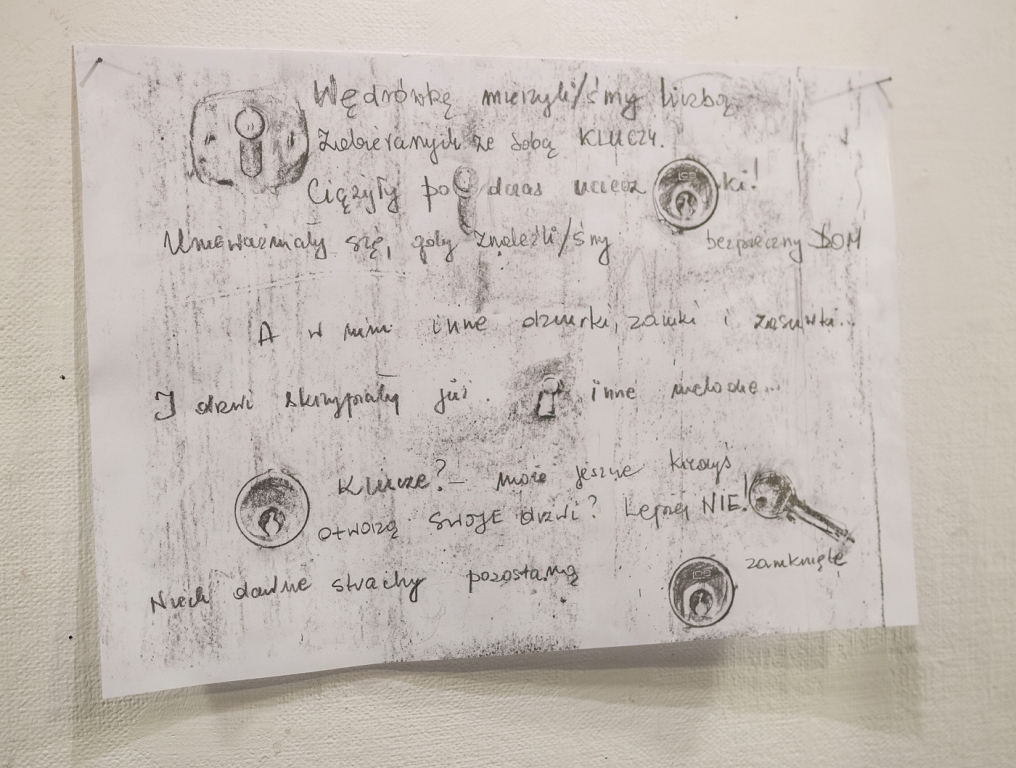 Wędrówkę mierzyli/śmy liczbą
Zabieranych ze sobą KLUCZY.
Ciążyły podczas uciecz ki!
Unieważniały się, gdy znaleźli/śmy bezpieczny DOM
A w nim inne dziurki, zamki i zasuwki...
I drzwi skrzypiały już inne melodie...
Klucze? – może jeszcze kiedyś
otworzą swoje drzwi? Lepiej NIE!
Niech dawne strachy pozostaną zamknięte